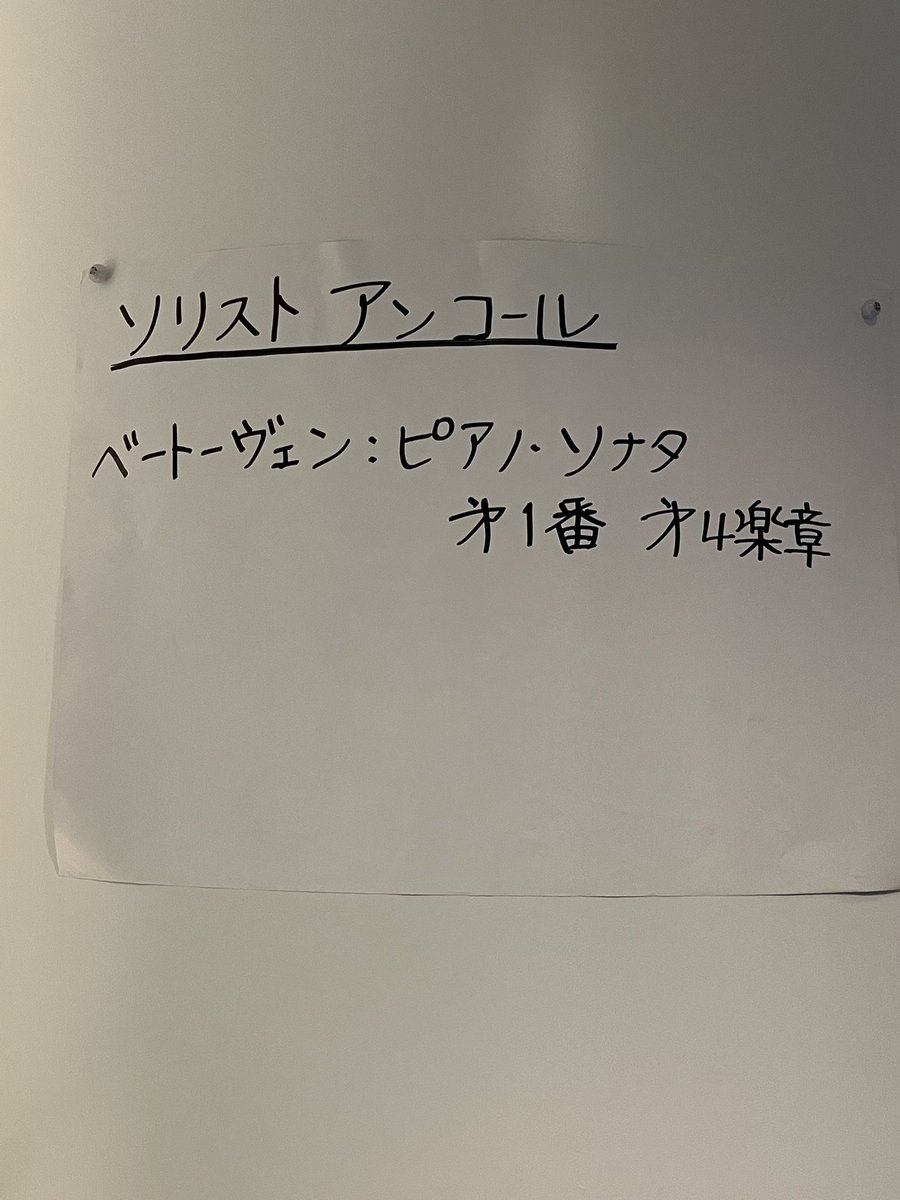 ソリスト アンコール
ベートーヴェン:ピアノ・ソナタ
才1番 才4楽章